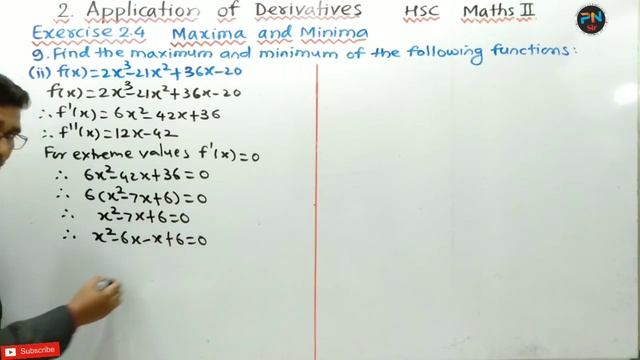 2. Application of Derivatives HSC Maths II
PN
Sir
Exercise 2.4 Maxima and Minima
9. Find the maximum and minimum of the following functions:
(ii) f(x)=2x³-21x²+36x-20
f(x)=2x³-21x²+36x-20
∴ f'(x)=6x²-42x+36
∴ f''(x)=12x-42
For extreme values f'(x)=0
∴ 6x²-42x+36=0
∴ 6(x²-7x+6)=0
∴ x²-7x+6=0
∴ x²-6x-x+6=0
Subscribe